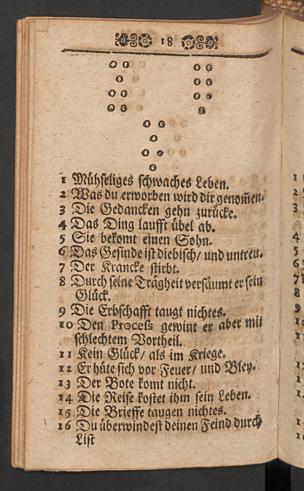 18
1 Mühseliges schwaches Leben.
2 Was du erworben wird dir genom̃en.
3 Die Gedancken gehn zurücke.
4 Das Ding laufft übel ab.
5 Sie bekomt einen Sohn.
6 Das Gesinde ist diebisch/ und untreu.
7 Der Krancke stirbt.
8 Durch seine Trägheit versäumt er sein
Glück.
9 Die Erbschafft taugt nichtes.
10 Den Process gewint er aber mit
schlechtem Vortheil.
11 Kein Glück/ als im Kriege.
12 Er hüte sich vor Feuer/ und Bley.
13 Der Bote komt nicht.
14 Die Reise kostet ihm sein Leben.
15 Die Brieffe taugen nichtes.
16 Du überwindest deinen Feind durch
List